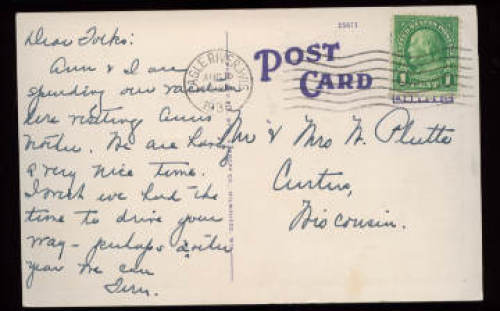 Dear Folks:
Ann & I are
spending our vacation
here visiting Ann's
Mother. We are having
a very nice time.
I wish we had the
time to drive your
way - perhaps another
year we can
EAGLE RIVER, WIS.
35671
POST CARD
Mr & Mrs H. Plutte
Curtiss,
Wisconsin.
UNITED STATES POSTAGE
1 1